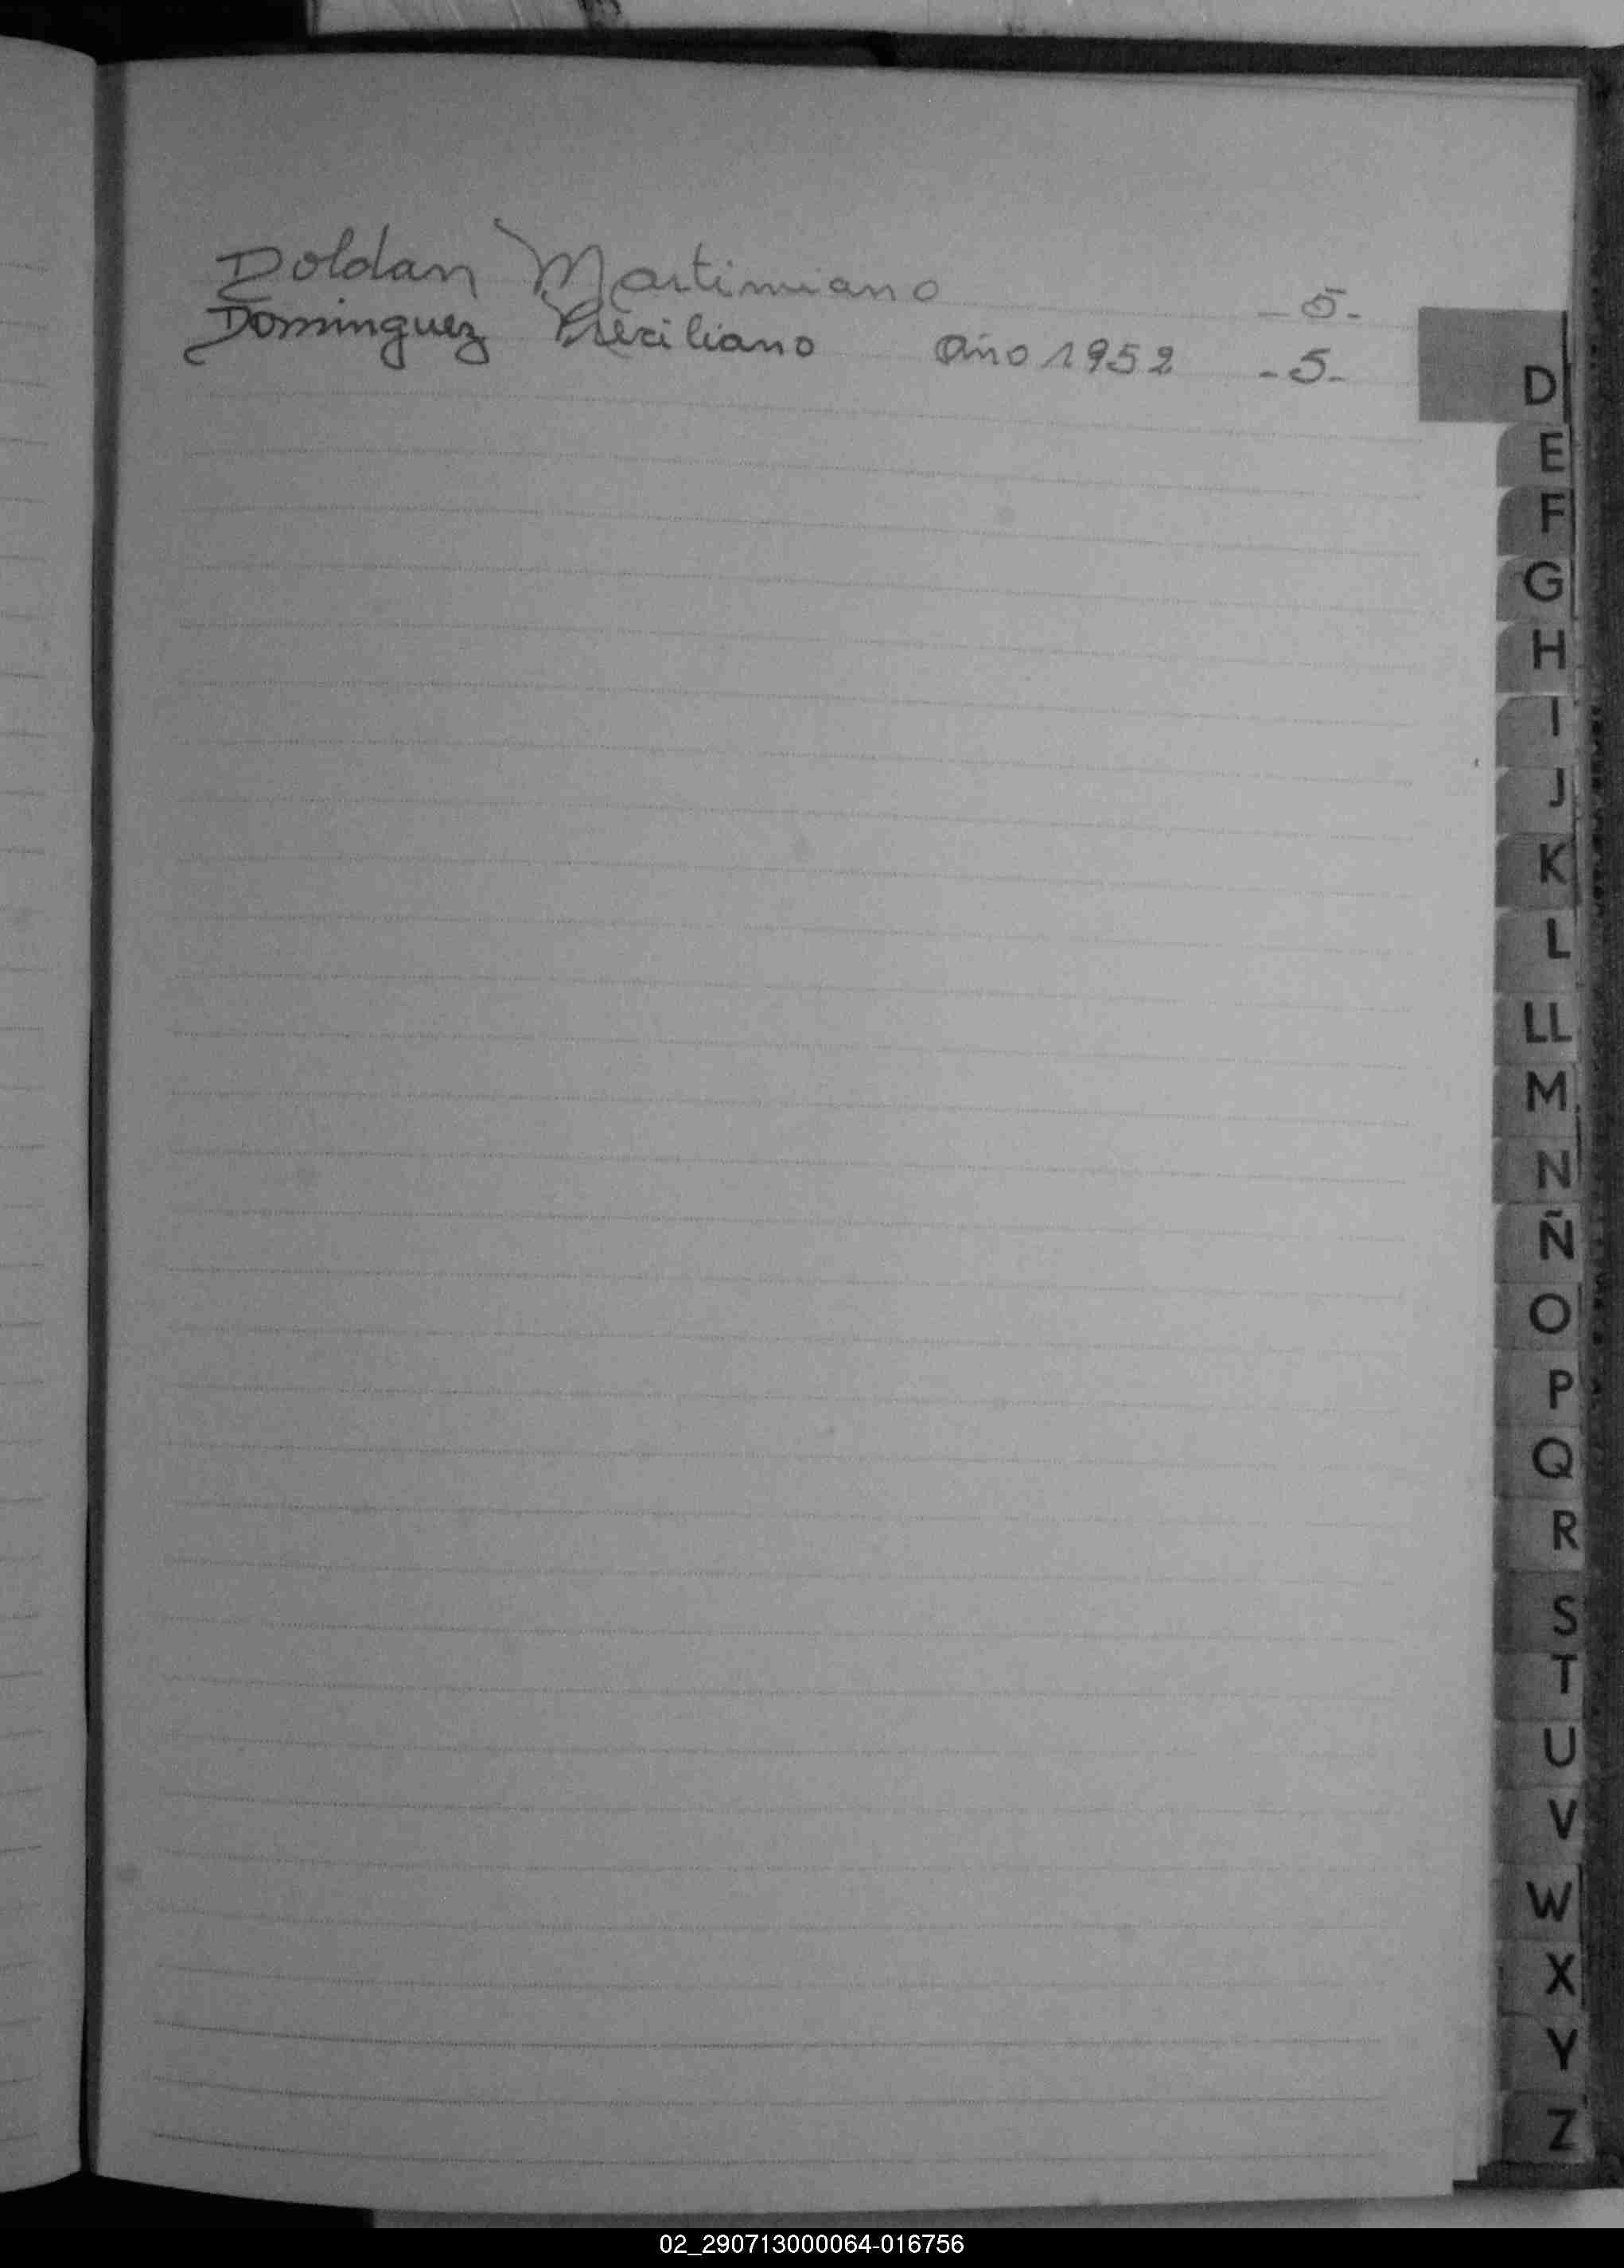 Doldan Martimiano -5-
Dominguez año 1952 -5-
D
E
F
G
H
I
J
K
L
LL
M
N
Ñ
O
P
Q
R
S
T
U
V
W
X
Y
Z
02_290713000064-016756